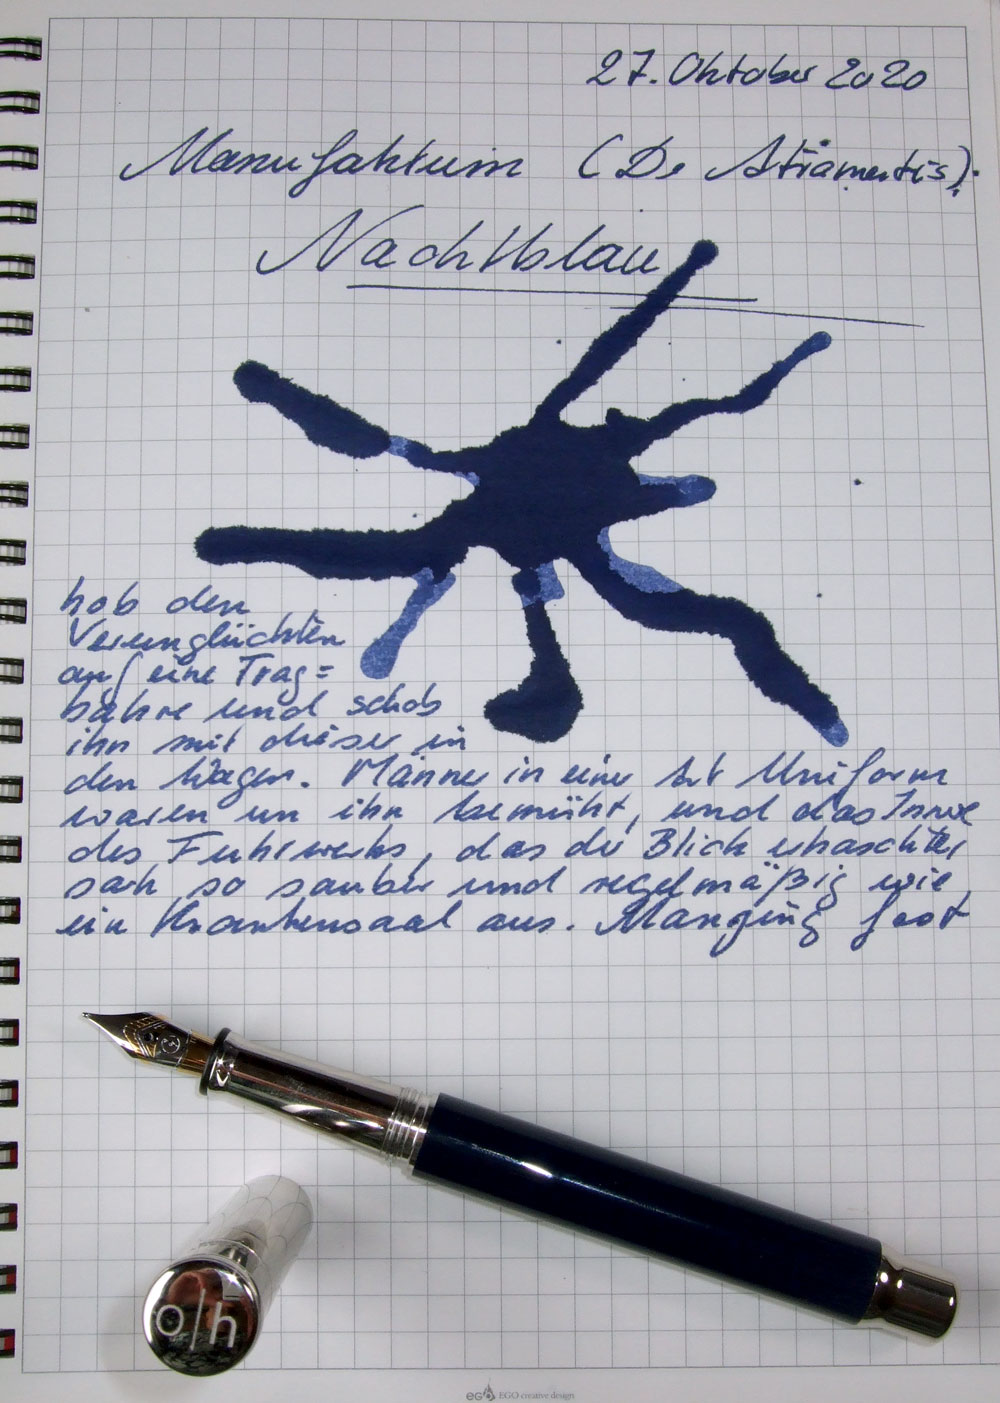 27. Oktober 2020
Manufaktum (De Atramentis).
Nachtblau
hob den
Verunglückten
auf eine Trag=
bahre und schob
ihn mit dieser in
den Wagen. Männer in einer Art Uniform
waren um ihn bemüht, und das Innre
des Fuhrwerks, das der Blick erhaschte,
sah so sauber und regelmäßig wie
ein Krankensaal aus. Man ging fast
o|h
EGO EGO creative design